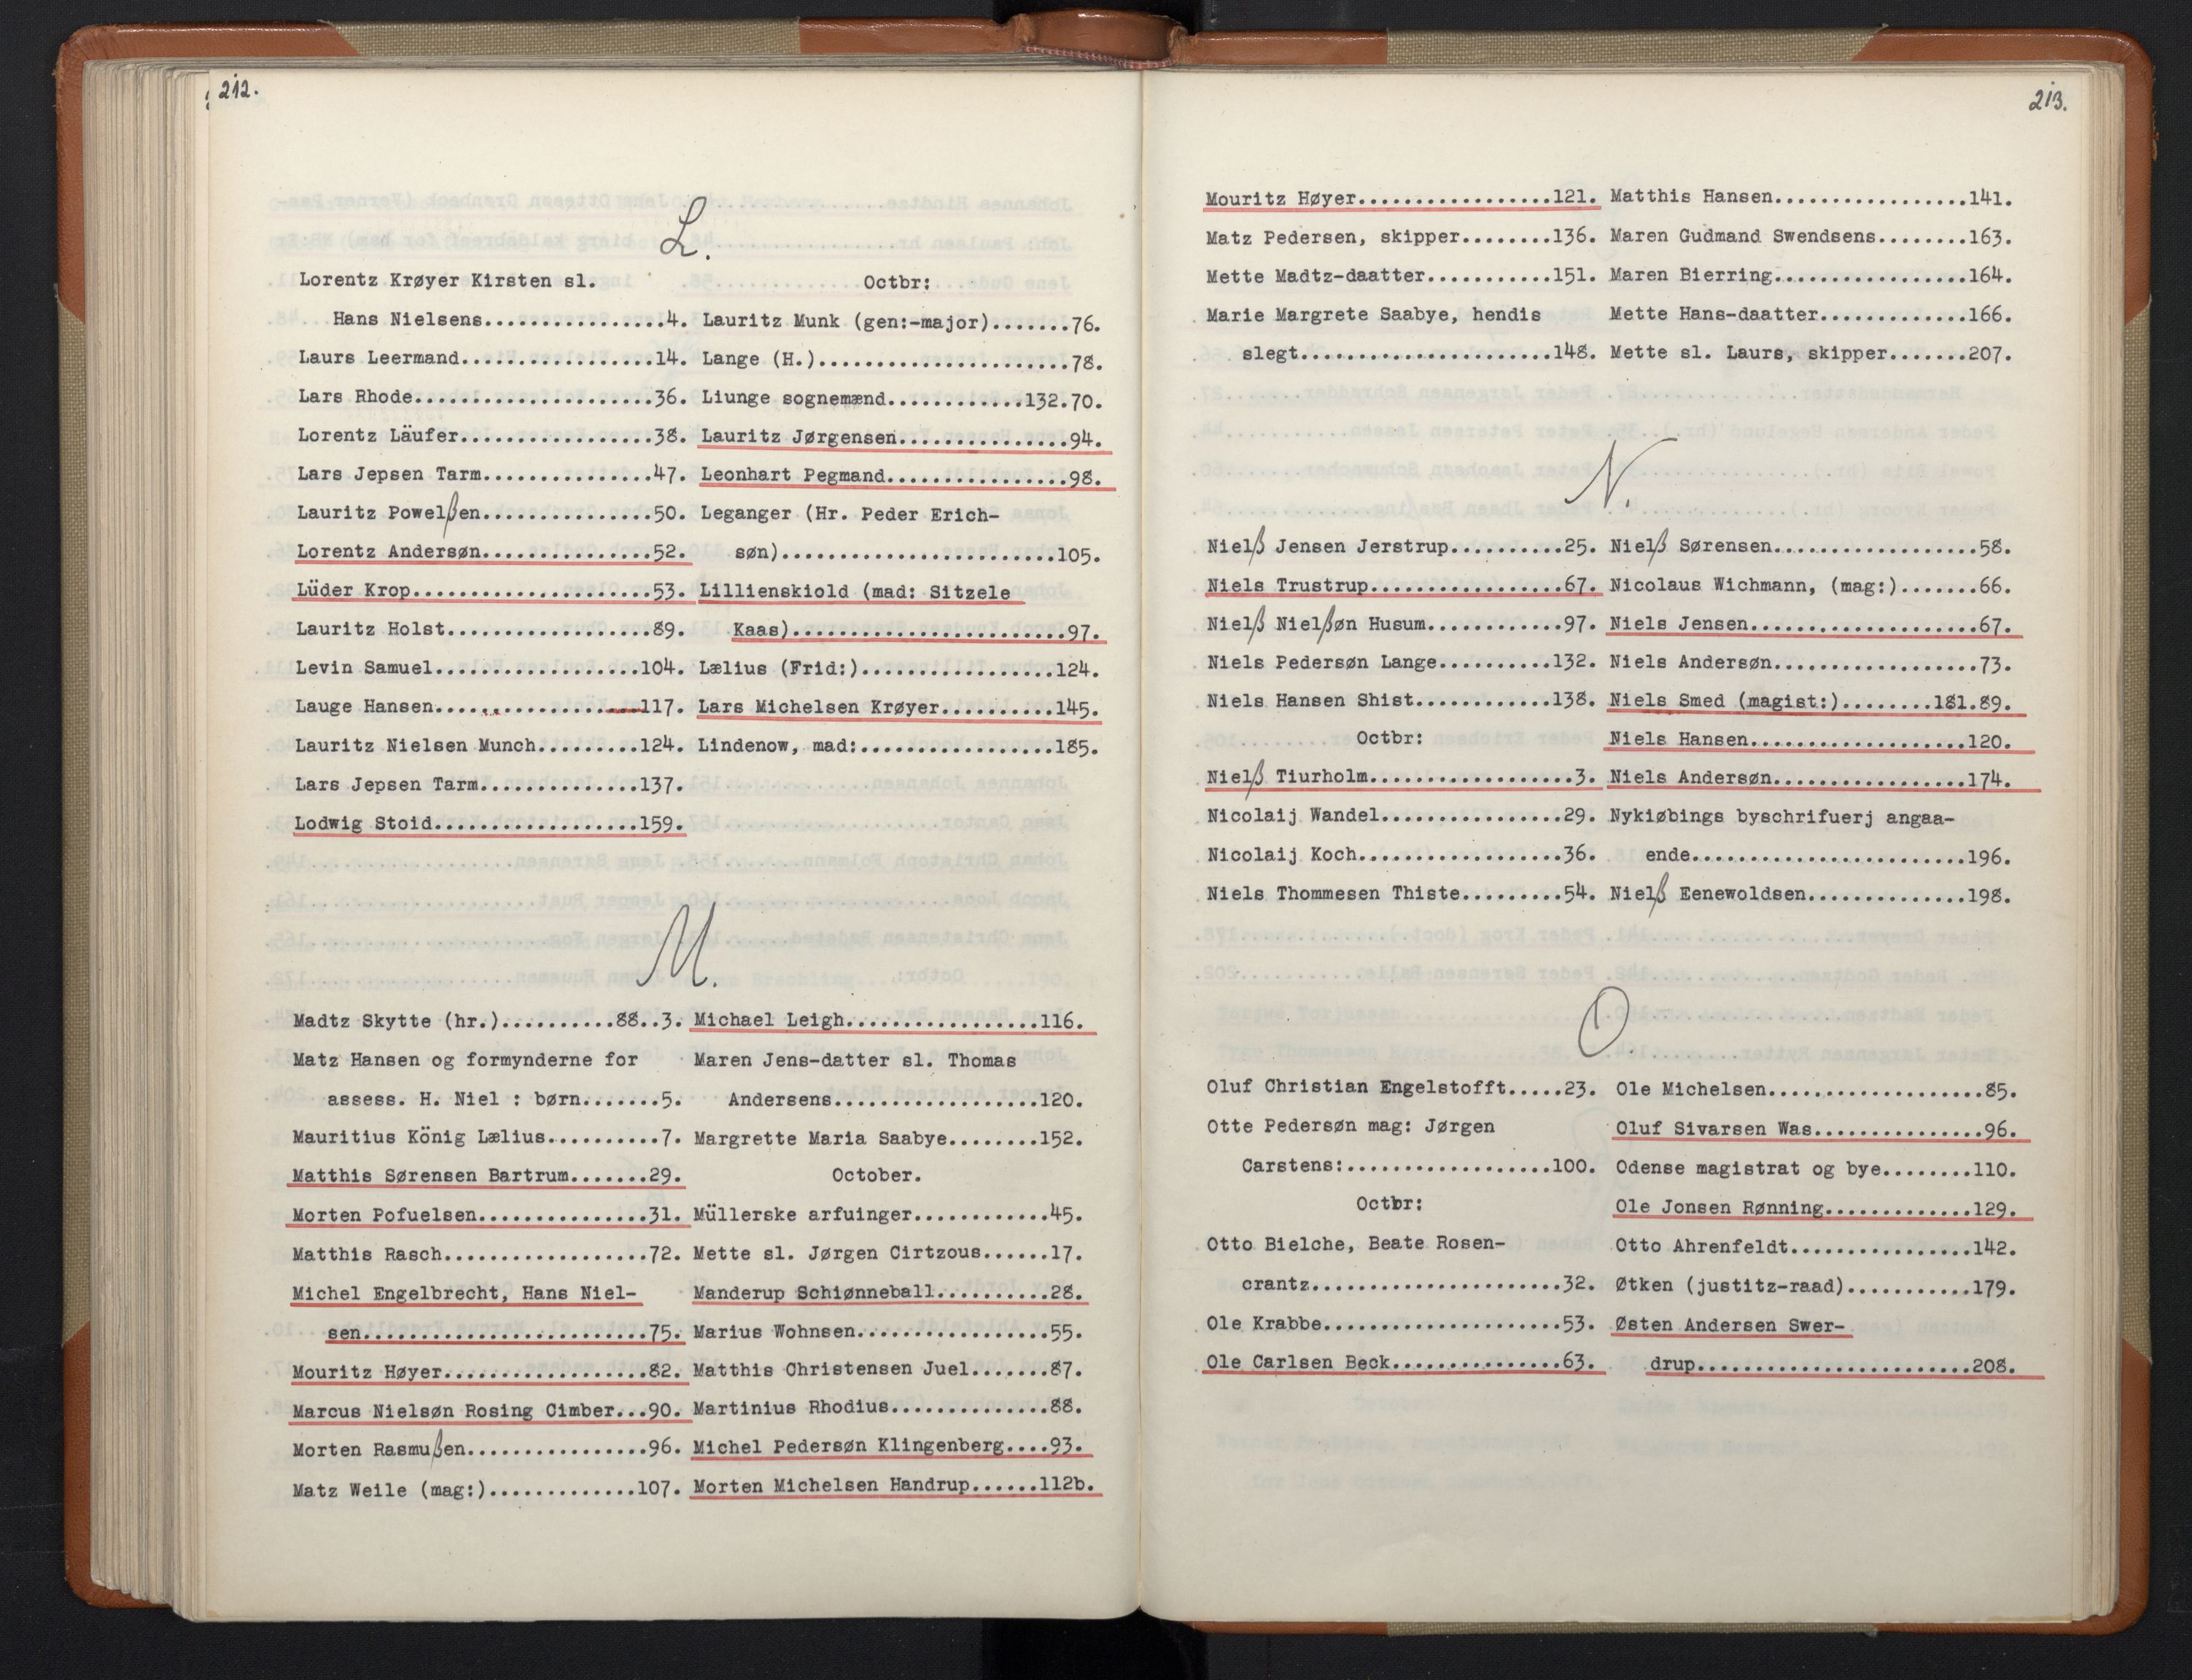 212.
L.
Lorentz Krøyer Kirsten sl.
Hans Nielsens................4.
Laurs Leermand.................14.
Lars Rhode.....................36.
Lorentz Läufer.................38.
Lars Jepsen Tarm...............47.
Lauritz Powelßen...............50.
Lorentz Andersøn...............52.
Lüder Krop.....................53.
Lauritz Holst..................89.
Levin Samuel..................104.
Lauge Hansen..................117.
Lauritz Nielsen Munch.........124.
Lars Jepsen Tarm..............137.
Lodwig Stoid..................159.
Octbr:
Lauritz Munk (gen:-major).......76.
Lange (H.)......................78.
Liunge sognemænd............132.70.
Lauritz Jørgensen...............94.
Leonhart Pegmand................98.
Leganger (Hr. Peder Erich-
søn)........................105.
Lillienskiold (mad: Sitzele
Kaas)........................97.
Lælius (Frid:).................124.
Lars Michelsen Krøyer..........145.
Lindenow, mad:.................185.
M.
Madtz Skytte (hr.)..........88..3.
Matz Hansen og formynderne for
assess. H. Niel : børn.......5.
Mauritius König Lælius..........7.
Matthis Sørensen Bartrum.......29.
Morten Pofuelsen...............31.
Matthis Rasch..................72.
Michel Engelbrecht, Hans Niel-
sen.........................75.
Mouritz Høyer..................82.
Marcus Nielsøn Rosing Cimber...90.
Morten Rasmußen................96.
Matz Weile (mag:).............107.
Michael Leigh.................116.
Maren Jens-datter sl. Thomas
Andersens..................120.
Margrette Maria Saabye........152.
October.
Müllerske arfuinger............45.
Mette sl. Jørgen Cirtzous......17.
Manderup Schiønneball..........28.
Marius Wohnsen.................55.
Matthis Christensen Juel.......87.
Martinius Rhodius..............88.
Michel Pedersøn Klingenberg....93.
Morten Michelsen Handrup......112b.
213.
Mouritz Høyer.................121.
Matz Pedersen, skipper........136.
Mette Madtz-daatter...........151.
Marie Margrete Saabye, hendis
slegt......................148.
Matthis Hansen.................141.
Maren Gudmand Swendsens........163.
Maren Bierring.................164.
Mette Hans-daatter.............166.
Mette sl. Laurs, skipper.......207.
N.
Nielß Jensen Jerstrup..........25.
Niels Trustrup.................67.
Nielß Nielßøn Husum............97.
Niels Pedersøn Lange..........132.
Niels Hansen Shist............138.
Octbr:
Nielß Tiurholm..................3.
Nicolaij Wandel................29.
Nicolaij Koch..................36.
Niels Thommesen Thiste.........54.
Nielß Sørensen..................58.
Nicolaus Wichmann, (mag:).......66.
Niels Jensen....................67.
Niels Andersøn..................73.
Niels Smed (magist:)........181.89.
Niels Hansen...................120.
Niels Andersøn.................174.
Nykiøbings byschrifuerj angaa-
ende........................196.
Nielß Eenewoldsen..............198.
O.
Oluf Christian Engelstofft.....23.
Otte Pedersøn mag: Jørgen
Carstens:..................100.
Octbr:
Otto Bielche, Beate Rosen-
crantz......................32.
Ole Krabbe.....................53.
Ole Carlsen Beck...............63.
Ole Michelsen...................85.
Oluf Sivarsen Was...............96.
Odense magistrat og bye........110.
Ole Jonsen Rønning.............129.
Otto Ahrenfeldt................142.
Øtken (justitz-raad)...........179.
Østen Andersen Swer-
drup........................208.